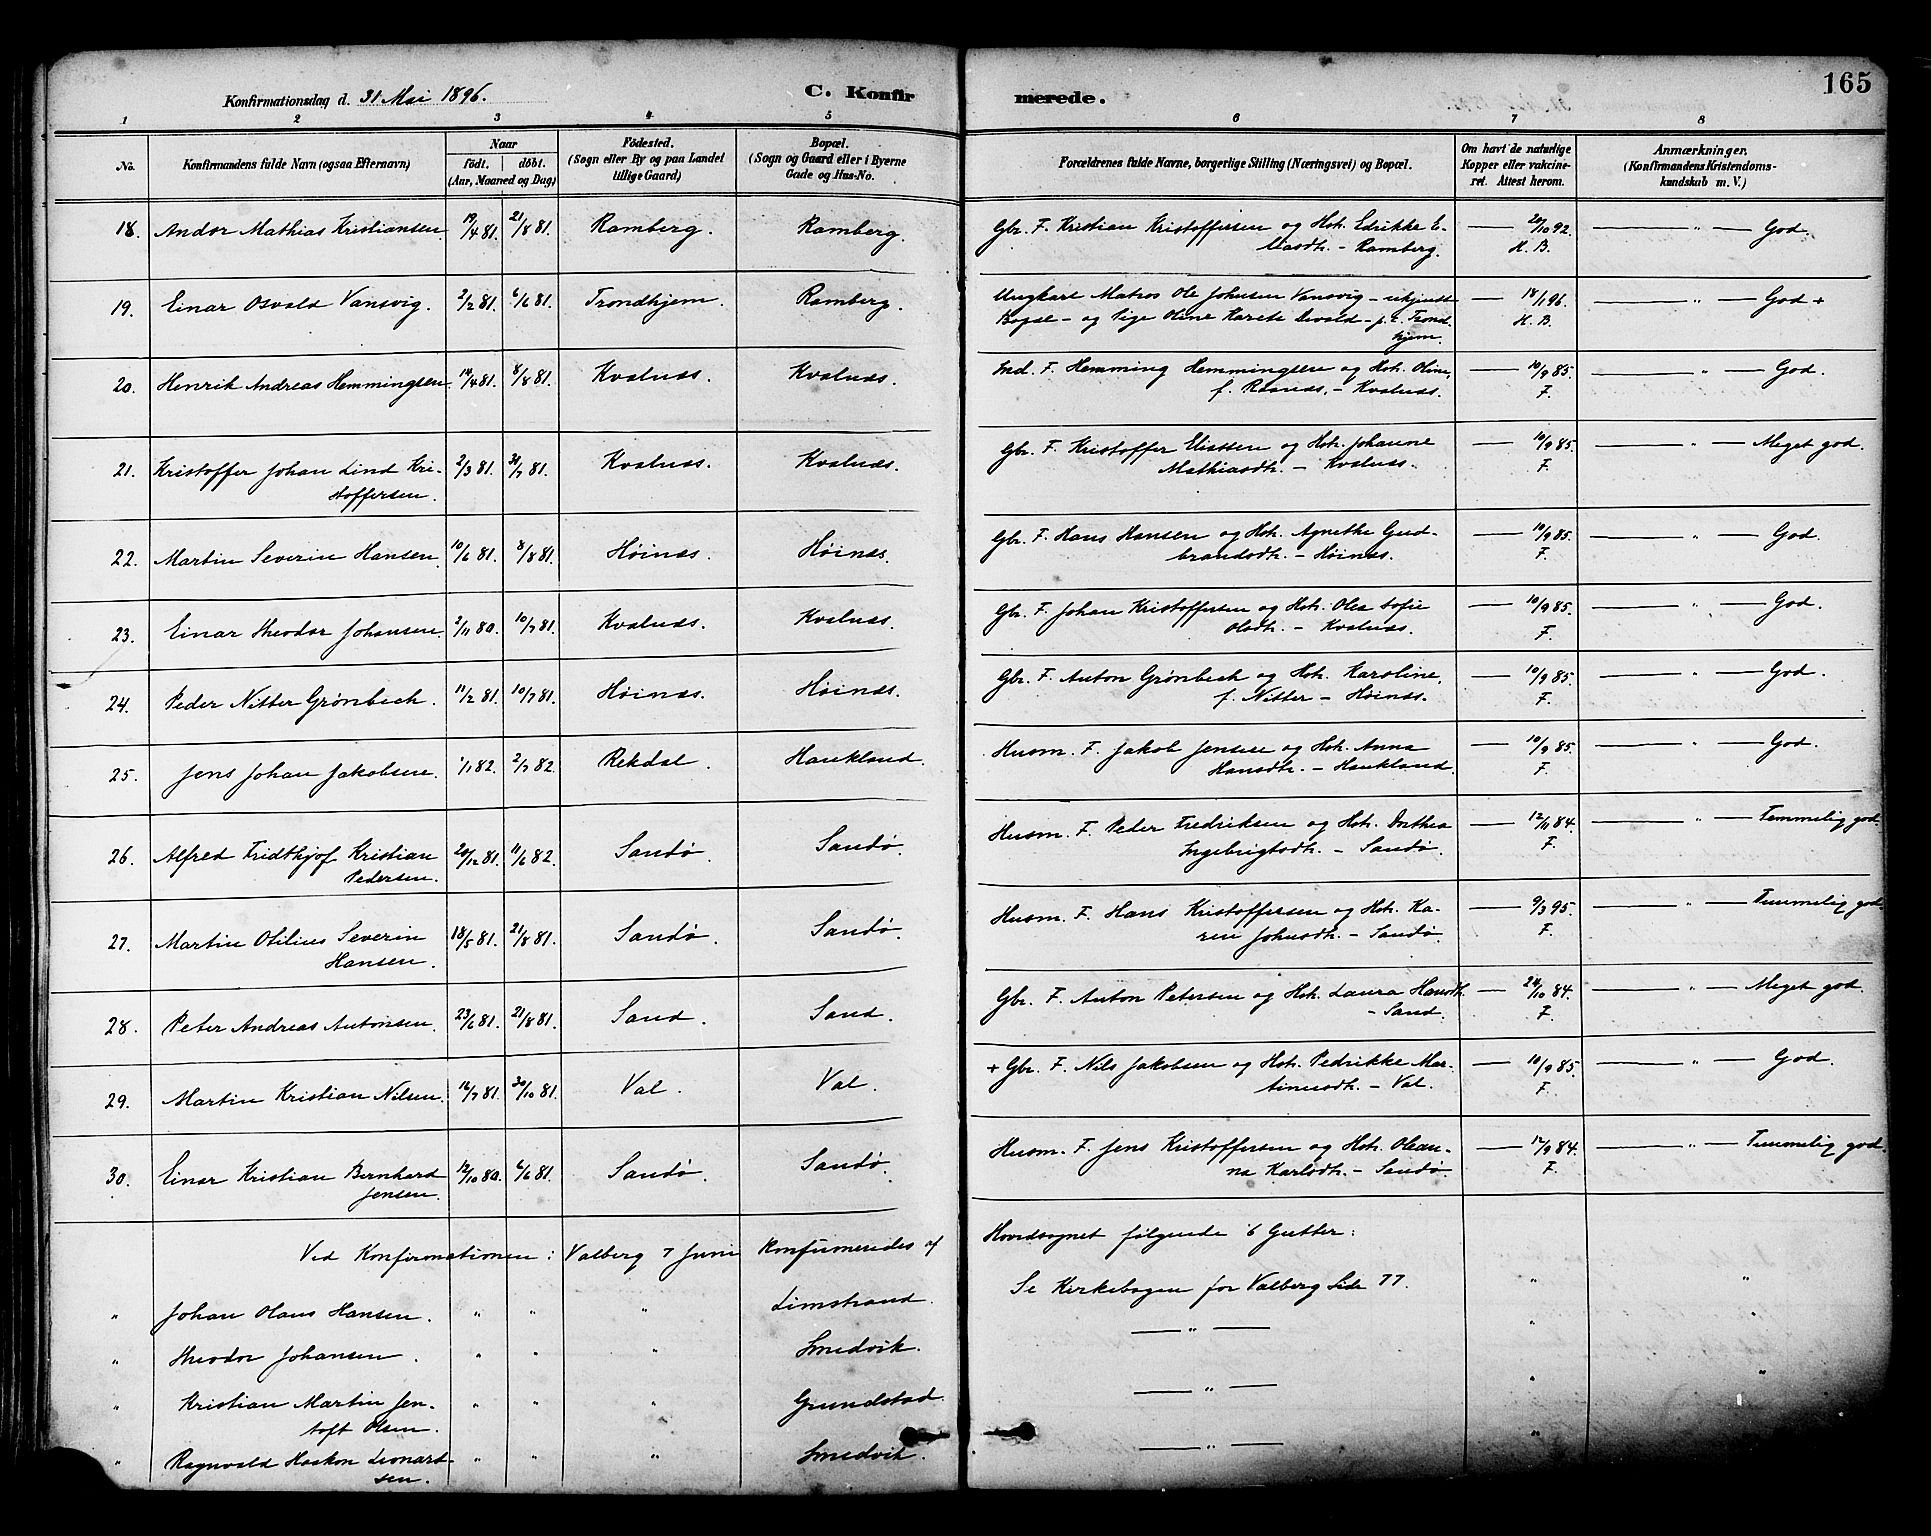 165
Konfirmationsdag d. 31 Mai 1896.
C. Konfirmerede.
1 2 3 4 5 6 7 8
No. Konfirmandens fulde Navn (ogsaa Efternavn) Naar födt. döbt. (Aar, Maaned og Dag) Födested. (Sogn eller By og paa Landet tillige Gaard) Bopæl. (Sogn og Gaard eller i Byerne Gade og Hus-No. Forældrenes fulde Navne, borgerlige Stilling (Næringsvei) og Bopæl. Om havt de naturlige Kopper eller vakcineret. Attest herom. Anmærkninger, (Konfirmandens Kristendomskundskab m. V.)
18. Andor Mathias Kristiansen 19/4 81. 21/8 81. Ramberg. Ramberg. Gbr. F. Kristian Kristoffersen og Hst. Edrikke E- — 20/10 92. — " — God.
liasdtr. - Ramberg. H. B.
19. Einar Osvald Vansvig. 2/2 81. 6/6 81. Trondhjem. Ramberg. Ungkarl Matros Ole Johnsen Vansvig - ukjendt — 18/1 96. — " — God +
Bopæl - og Pige Oline Karete Devold - p.t. Trond- H. B.
hjem.
20. Henrik Andreas Hemmingsen 14/4 81. 8/8 81. Kvalnæs. Kvalnæs. Ind. F. Hemming Hemmingsen og Hst. Oline, — 10/9 85. — " — God.
f. Raanæs. - Kvalnæs. F.
21. Kristoffer Johan Lind Kri- 2/3 81. 31/7 81. Kvalnæs. Kvalnæs. Gbr. F. Kristoffer Eliassen og Hst. Johanne — 10/9 85. — " — Meget god.
stoffersen. Mathiasdtr. - Kvalnæs. F.
22. Martin Severin Hansen 10/6 81. 8/8 81. Høinæs. Høinæs. Gbr. F. Hans Hansen og Hst. Agnethe Gud- — 10/9 85. — " — God.
brandsdtr. - Høinæs. F.
23. Einar Theodor Johansen. 2/11 80. 10/7 81. Kvalnæs. Kvalnæs. Gbr. F. Johan Kristoffersen og Hst. Olea Sofie — 10/9 85. — " — God.
Olsdtr. - Kvalnæs. F.
24. Peder Nitter Grønbech. 11/2 81. 10/7 81. Høinæs. Høinæs. Gbr. F. Anton Grønbech og Hst. Karoline, — 10/9 85. — " — God.
f. Nitter - Høinæs. F.
25. Jens Johan Jakobsen. 1/1 82. 2/7 82. Rekdal. Haukland. Husm. F. Jakob Jensen og Hst. Anna — 10/9 85. — " — God.
Hansdtr. - Haukland. F.
26. Alfred Fridthjof Kristian 20/12 81. 11/6 82. Sandø. Sandø. Husm. F. Peder Fredriksen og Hst. Dorthea — 12/11 84. — " — Temmelig god.
Pedersen. Ingebrigtsdtr. - Sandø. F.
27. Martin Otilius Severin 18/5 81. 21/8 81. Sandø. Sandø. Husm. F. Hans Kristoffersen og Hst. Ka- — 9/3 95. — " — Temmelig god.
Hansen. ren Johnsdtr. - Sandø. F.
28. Peter Andreas Antonsen. 23/6 81. 21/8 81. Sand. Sand. Gbr. F. Anton Petersen og Hst. Laura Hansdtr. — 24/10 84. — " — Meget god.
- Sand. F.
29. Martin Kristian Nilsen. 16/7 81. 30/10 81. Val. Val. + Gbr. F. Nils Jakobsen og Hst. Pedrikke Mar- — 10/9 85. — " — God.
tinusdtr. - Val. F.
30. Einar Kristian Bernhard 12/10 80. 6/6 81. Sandø. Sandø. Husm. F. Jens Kristoffersen og Hst. Olean- — 12/9 84. — " — Temmelig god.
Jensen. na Karlsdtr. - Sandø F.
Ved Konfirmationen i Valberg 7 Juni konfirmeredes af Hovedsognet følgende 6 Gutter:
" Johan Olaus Hansen. " " " Limstrand. Se Kirkebogen for Valberg Side 77. " "
" Theodor Johansen. " " " Smedvik. — " — "
" Kristian Martin Jen- " " " Grundstad. — " — " "
toft Olsen.
" Ragnvald Haakon Leonard- " " " Smedvik. — " — "
sen.